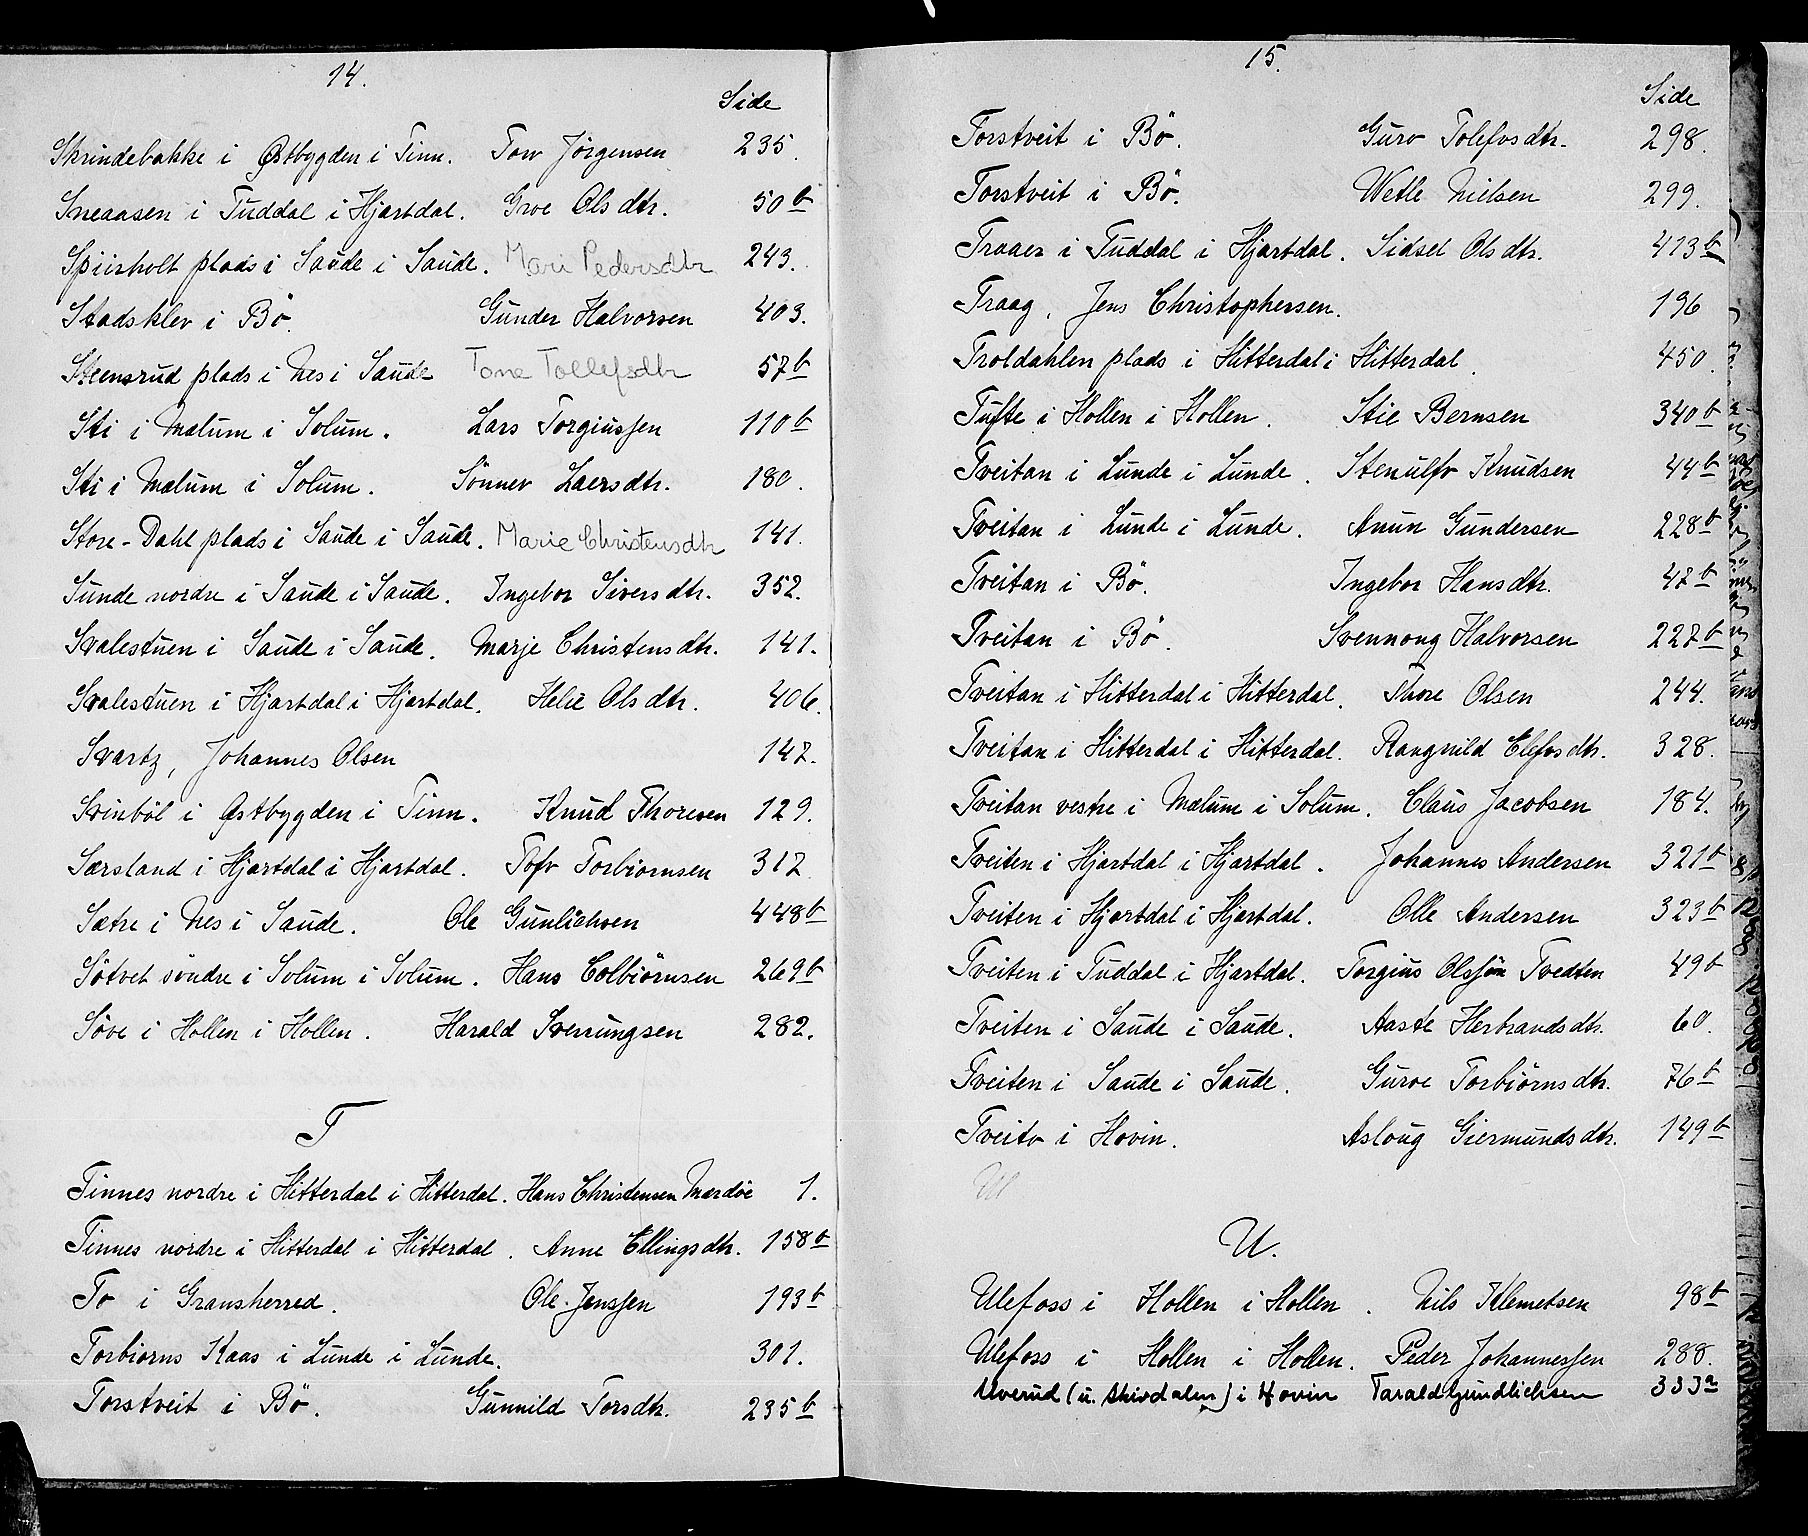 14.
Side
Skrindebakke i Østbygden i Tinn. Tov Jørgensen 235.
Sneaasen i Tuddal i Hjartdal. Groe Olsdtr. 50 b
Spiirholt plads i Saude i Saude. Mari Pedersdtr 243.
Stadskler i Bö. Gunder Halvorsen 403.
Steensrud plads i Nes i Saude Tone Tollefsdtr 57 b
Sti i Mælum i Solum. Lars Torgiussen 110 b
Sti i Mælum i Solum. Sönnev Laersdtr. 180.
Store-Dahl plads i Saude i Saude. Marie Christensdtr 141.
Sunde nordre i Saude i Saude. Ingebor Siversdtr. 352.
Svalestuen i Saude i Saude. Marje Christensdtr. 141.
Svalestuen i Hjartdal i Hjartdal. Helie Olsdtr. 406.
Svartz, Johannes Olsen 147.
Svinböl i Østbygden i Tinn. Knud Thoresen 129.
Særsland i Hjartdal i Hjartdal. Tofv Torbiornsen 317.
Sætre i Nes i Saude. Ole Gunlichsen 448 b
Søtvet söndre i Solum i Solum. Hans Colbiörnsen 269 b
Söve i Hollen i Hollen. Harald Sverrungsen 282.
T
Tinnes nordre i Hitterdal i Hitterdal. Hans Christensen Mærdöe 1.
Tinnes nordre i Hitterdal i Hitterdal. Anne Ellingsdtr. 158 b
To i Gransherred. Ole Jenssen 193 b
Torbiorns Kaas i Lunde i Lunde. 301.
Torstveit i Bö. Gunnild Torsdtr. 235 b
15.
Side
Torstveit i Bö. Guro Tolefvsdtr. 298.
Torstveit i Bö. Wetle Nielsen 299.
Traaer i Tuddal i Hjartdal. Sidsel Olsdtr. 413 b
Traag, Jens Christophersen. 196
Troldahlen plads i Hitterdal i Hitterdal. 450.
Tufte i Hollen i Hollen. Stie Bernsen 340 b
Tveitan i Lunde i Lunde. Stenulfv Knudsen 44 b
Tveitan i Lunde i Lunde. Anun Gundersen 228 b
Tveitan i Bö. Ingebor Hansdtr. 47 b
Tveitan i Bö. Svennoug Halvorsen 227 b
Tveitan i Hitterdal i Hitterdal. Thore Olsen 244.
Tveitan i Hitterdal i Hitterdal. Rangnild Elefvsdtr. 328.
Tveitan vestre i Mælum i Solum. Claus Jacobsen 184.
Tveiten i Hjartdal i Hjartdal. Johannes Andersen 321 b
Tveiten i Hjartdal i Hjartdal. Olle Andersen 323 b
Tveiten i Tuddal i Hjartdal. Torgius Olssön Tvedten 49 b
Tveiten i Saude i Saude. Aaste Herbrandsdtr. 60.
Tveiten i Saude i Saude. Guroe Torbiörnsdtr. 76 b
Tveito i Hovin. Asloug Giermundsdtr. 149 b
U
U.
Ulefoss i Hollen i Hollen. Nils Klemetsen 98 b
Ulefoss i Hollen i Hollen. Peder Johannessen 288.
Uverud (u. Skirdalen) i Hovin Tarald Gundlichsen 333 a